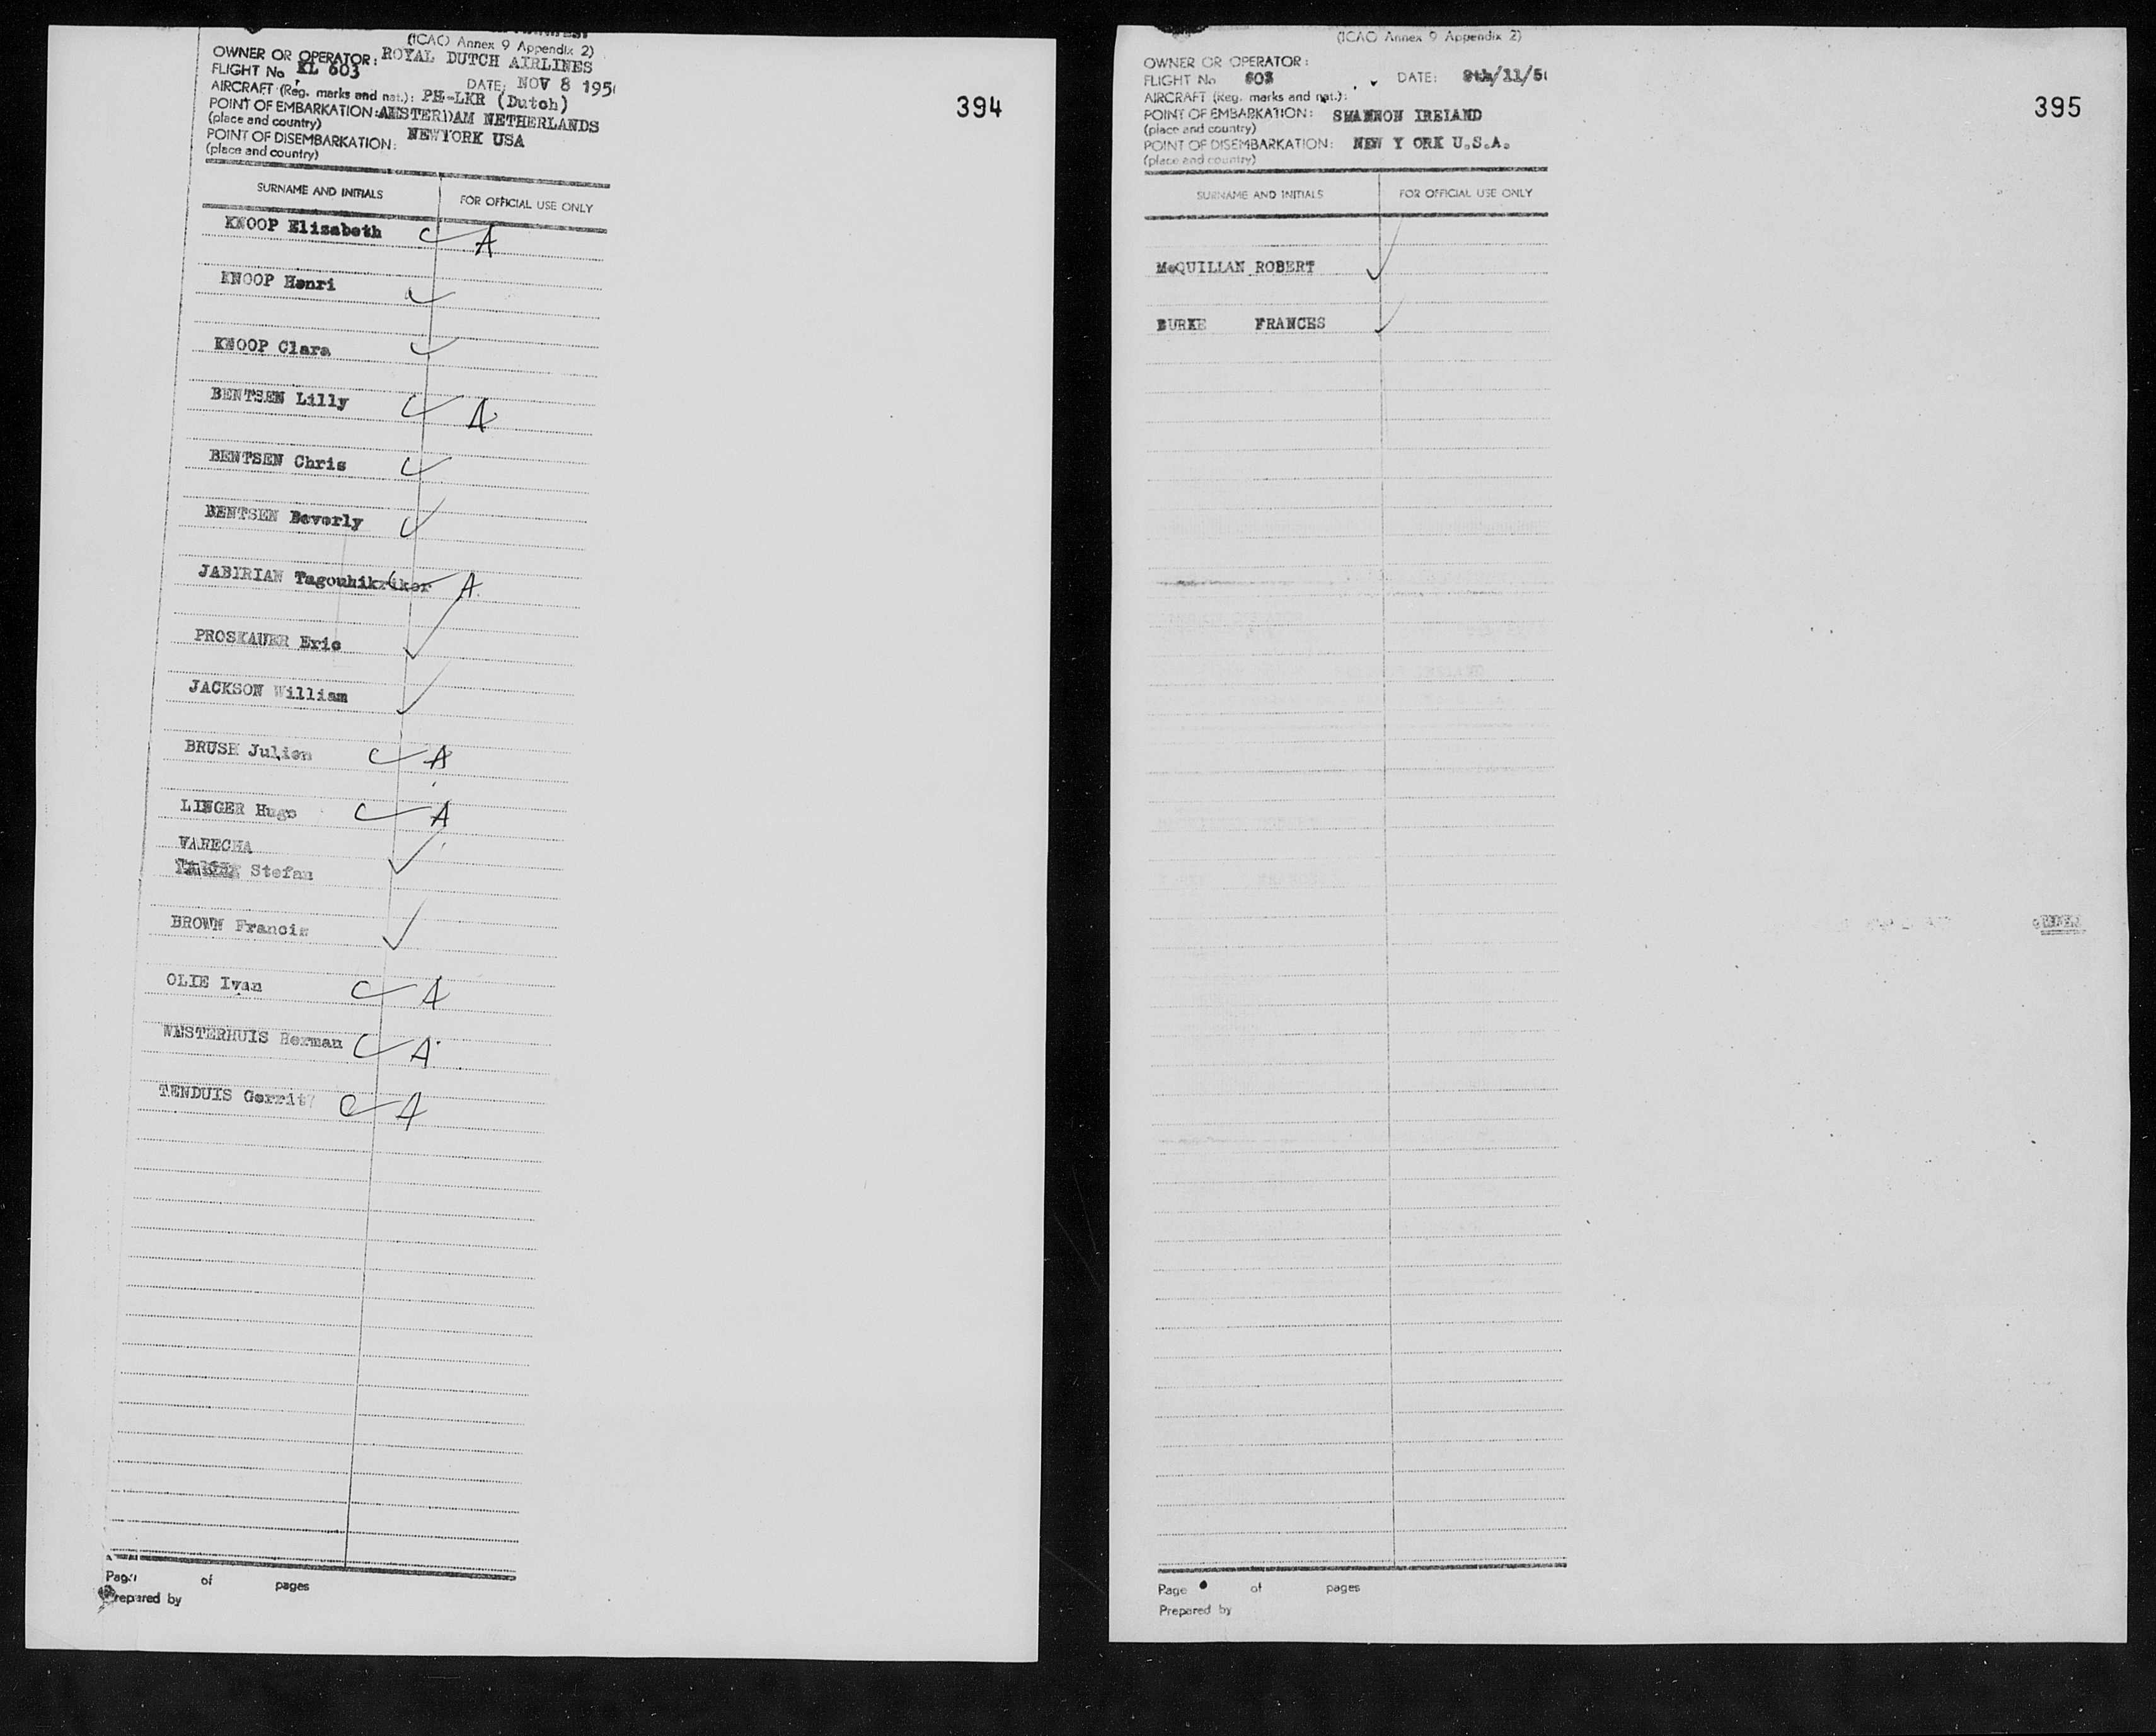 (ICAO Annex 9 Appendix 2)
OWNER OR OPERATOR: ROYAL DUTCH AIRLINES
FLIGHT No KL 603
DATE: NOV 8 195
AIRCRAFT (Reg. marks and nat.): PH-LKR (Dutch)
POINT OF EMBARKATION: AMSTERDAM NETHERLANDS
(place and country)
POINT OF DISEMBARKATION: NEWYORK USA
(place and country)
394
SURNAME AND INITIALS FOR OFFICIAL USE ONLY
KNOOP Elisabeth A
KNOOP Henri
KNOOP Clara
BENTSEN Lilly A
BENTSEN Chris
BENTSEN Beverly
JABIRIAN A
PROSKAUER Eric
JACKSON William
BRUSH Julien A
LINGER Hugo A
VARECHA
Stefan
BROWN Francis
OLIE Ivan A
WESTERHUIS Herman A
TENDUIS Gerrit A
Page of pages
Prepared by
(ICAO Annex 9 Appendix 2)
OWNER OR OPERATOR:
FLIGHT No 603 DATE: 8th/11/5
AIRCRAFT (Reg. marks and nat.):
POINT OF EMBARKATION: SHANNON IRELAND
(place and country)
POINT OF DISEMBARKATION: NEW Y ORK U.S.A.
(place and country)
395
SURNAME AND INITIALS FOR OFFICIAL USE ONLY
McQUILLAN ROBERT
BURKE FRANCES
Page of pages
Prepared by